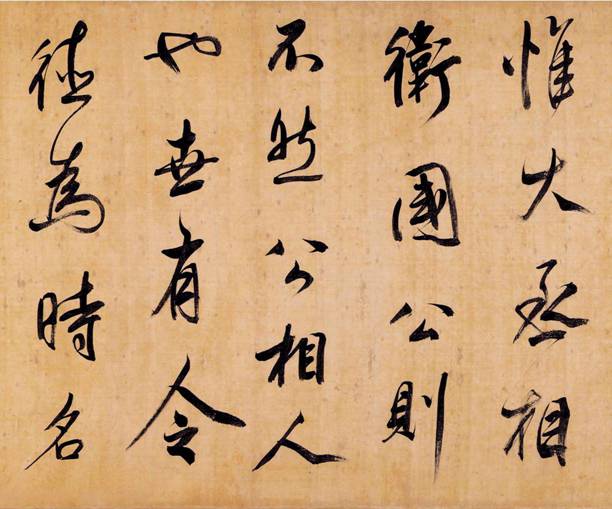 惟大丞相
衛國公則
不然公相人
也世有令
德為時名